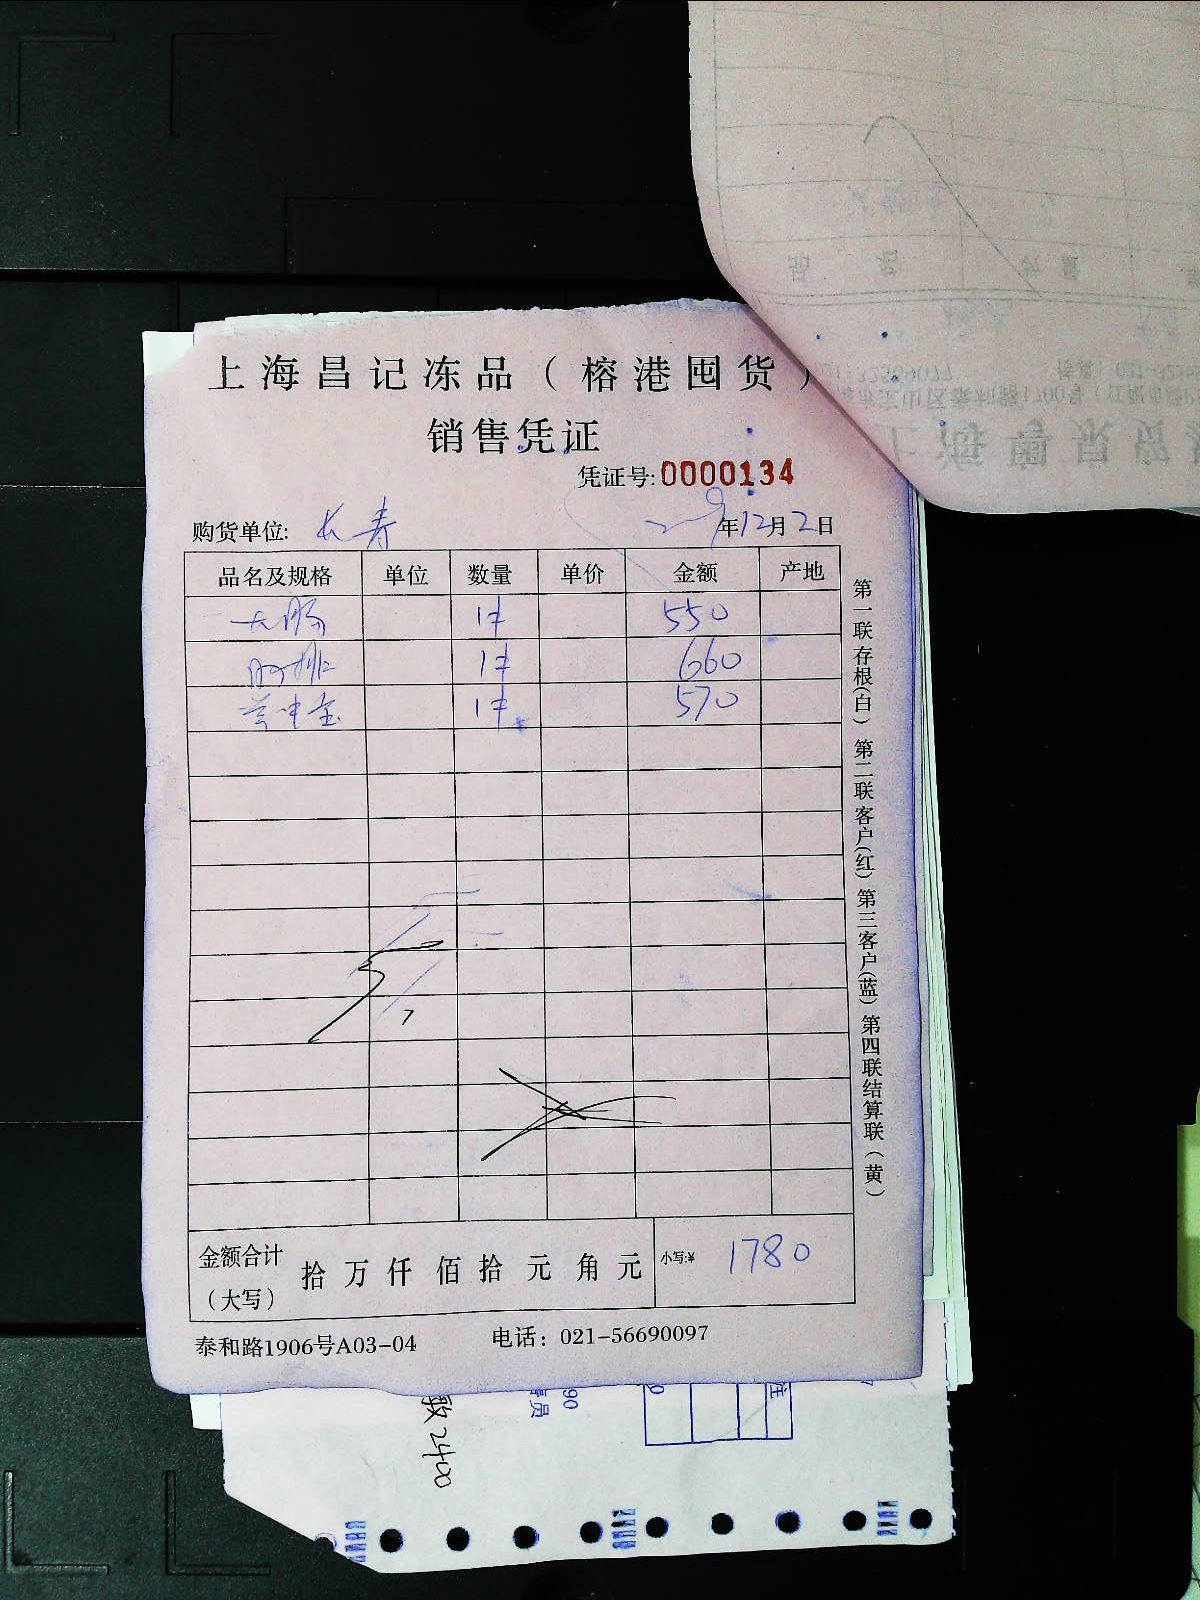 上海昌记冻品（榕港囤货）
销售凭证
凭证号:0000134
购货单位: 长寿 年12月2日
品名及规格 单位 数量 单价 金额 产地
大肠 1件 550
肋排 1件 660
1件 570
金额合计（大写） 拾 万 仟 佰 拾 元 角 元 小写:¥ 1780
泰和路1906号A03-04 电话：021-56690097
第一联存根(白) 第二联客户(红) 第三客户(蓝) 第四联结算联（黄）
2400